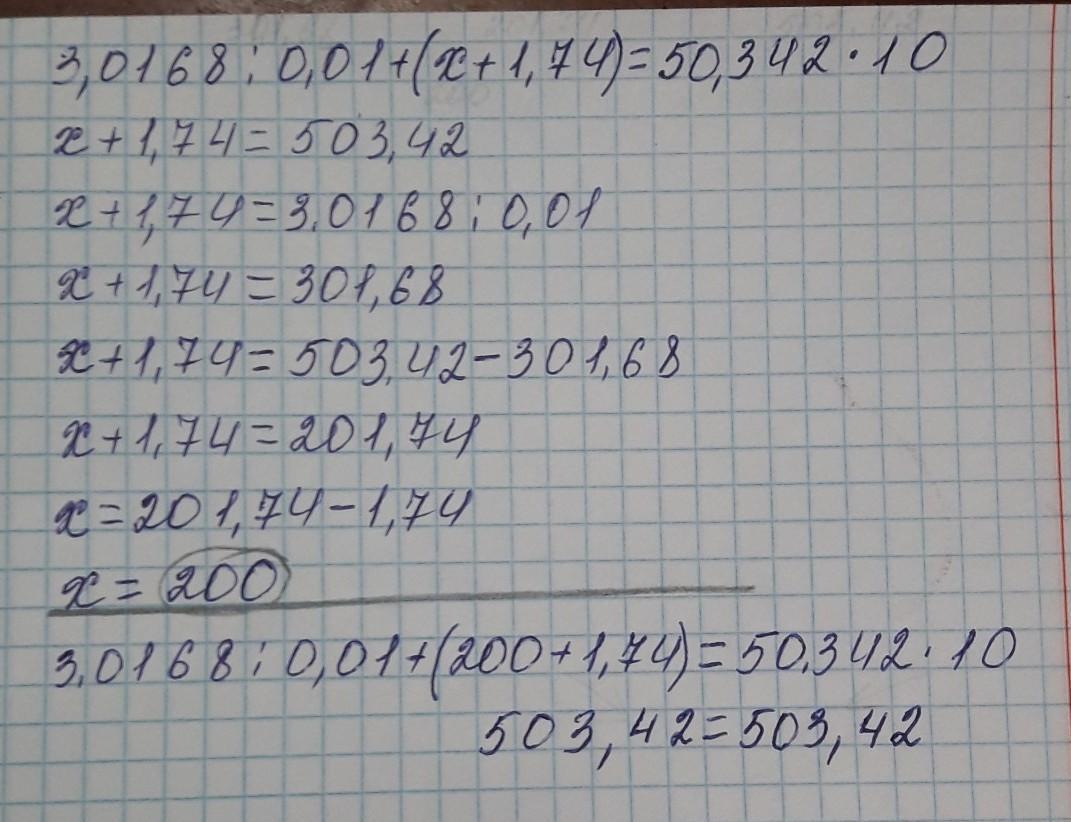 3,0168 : 0,01+(x+1,74)=50,342·10
x+1,74=503,42
x+1,74=3,0168:0,01
x+1,74=301,68
x+1,74=503,42-301,68
x+1,74=201,74
x=201,74-1,74
x=200
3,0168:0,01+(200+1,74)=50,342·10
503,42=503,42